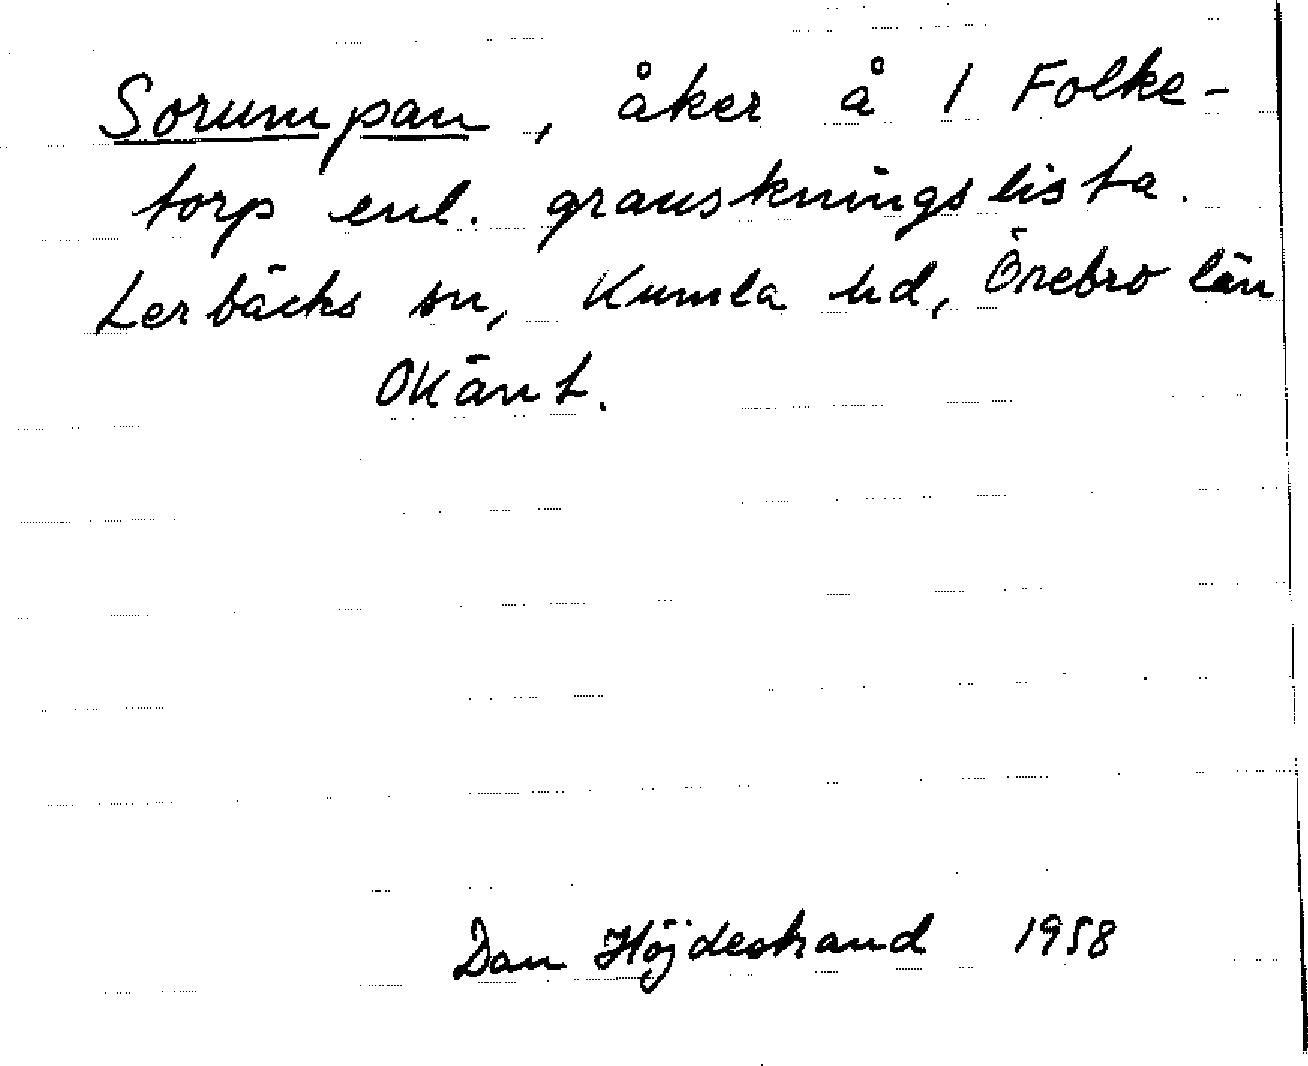 Sorumpan, åker å 1 Folke-
torp enl. granskningslista.
Lerbäcks sn, Kumla hd, Örebro län
Okänt.
Dan Höjdestrand 1958